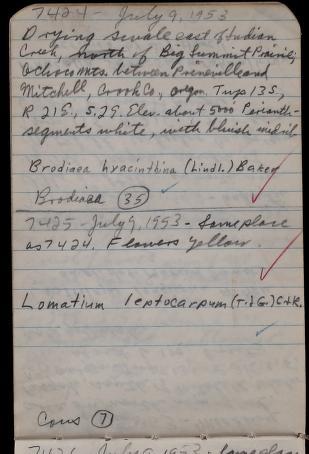 7424 - July 9, 1953
Drying swale east of Indian
Creek, north of Big Summit Prairie,
Ochoco Mts. between Prineville and
Mitchell, Crook Co., Oregon. Twp 13 S,
R 21 E, S. 29. Elev. about 5000' Perianth-
segments white, with bluish midrib-
Brodiaea hyacinthina (Lindl.) Baker
Brodiaea (35)
7425 - July 9, 1953 - Same place
as 7424. Flowers yellow.
Lomatium leptocarpum (T. & G.) C & R.
Cous (7)
7426 July 9, 1953 - Same place